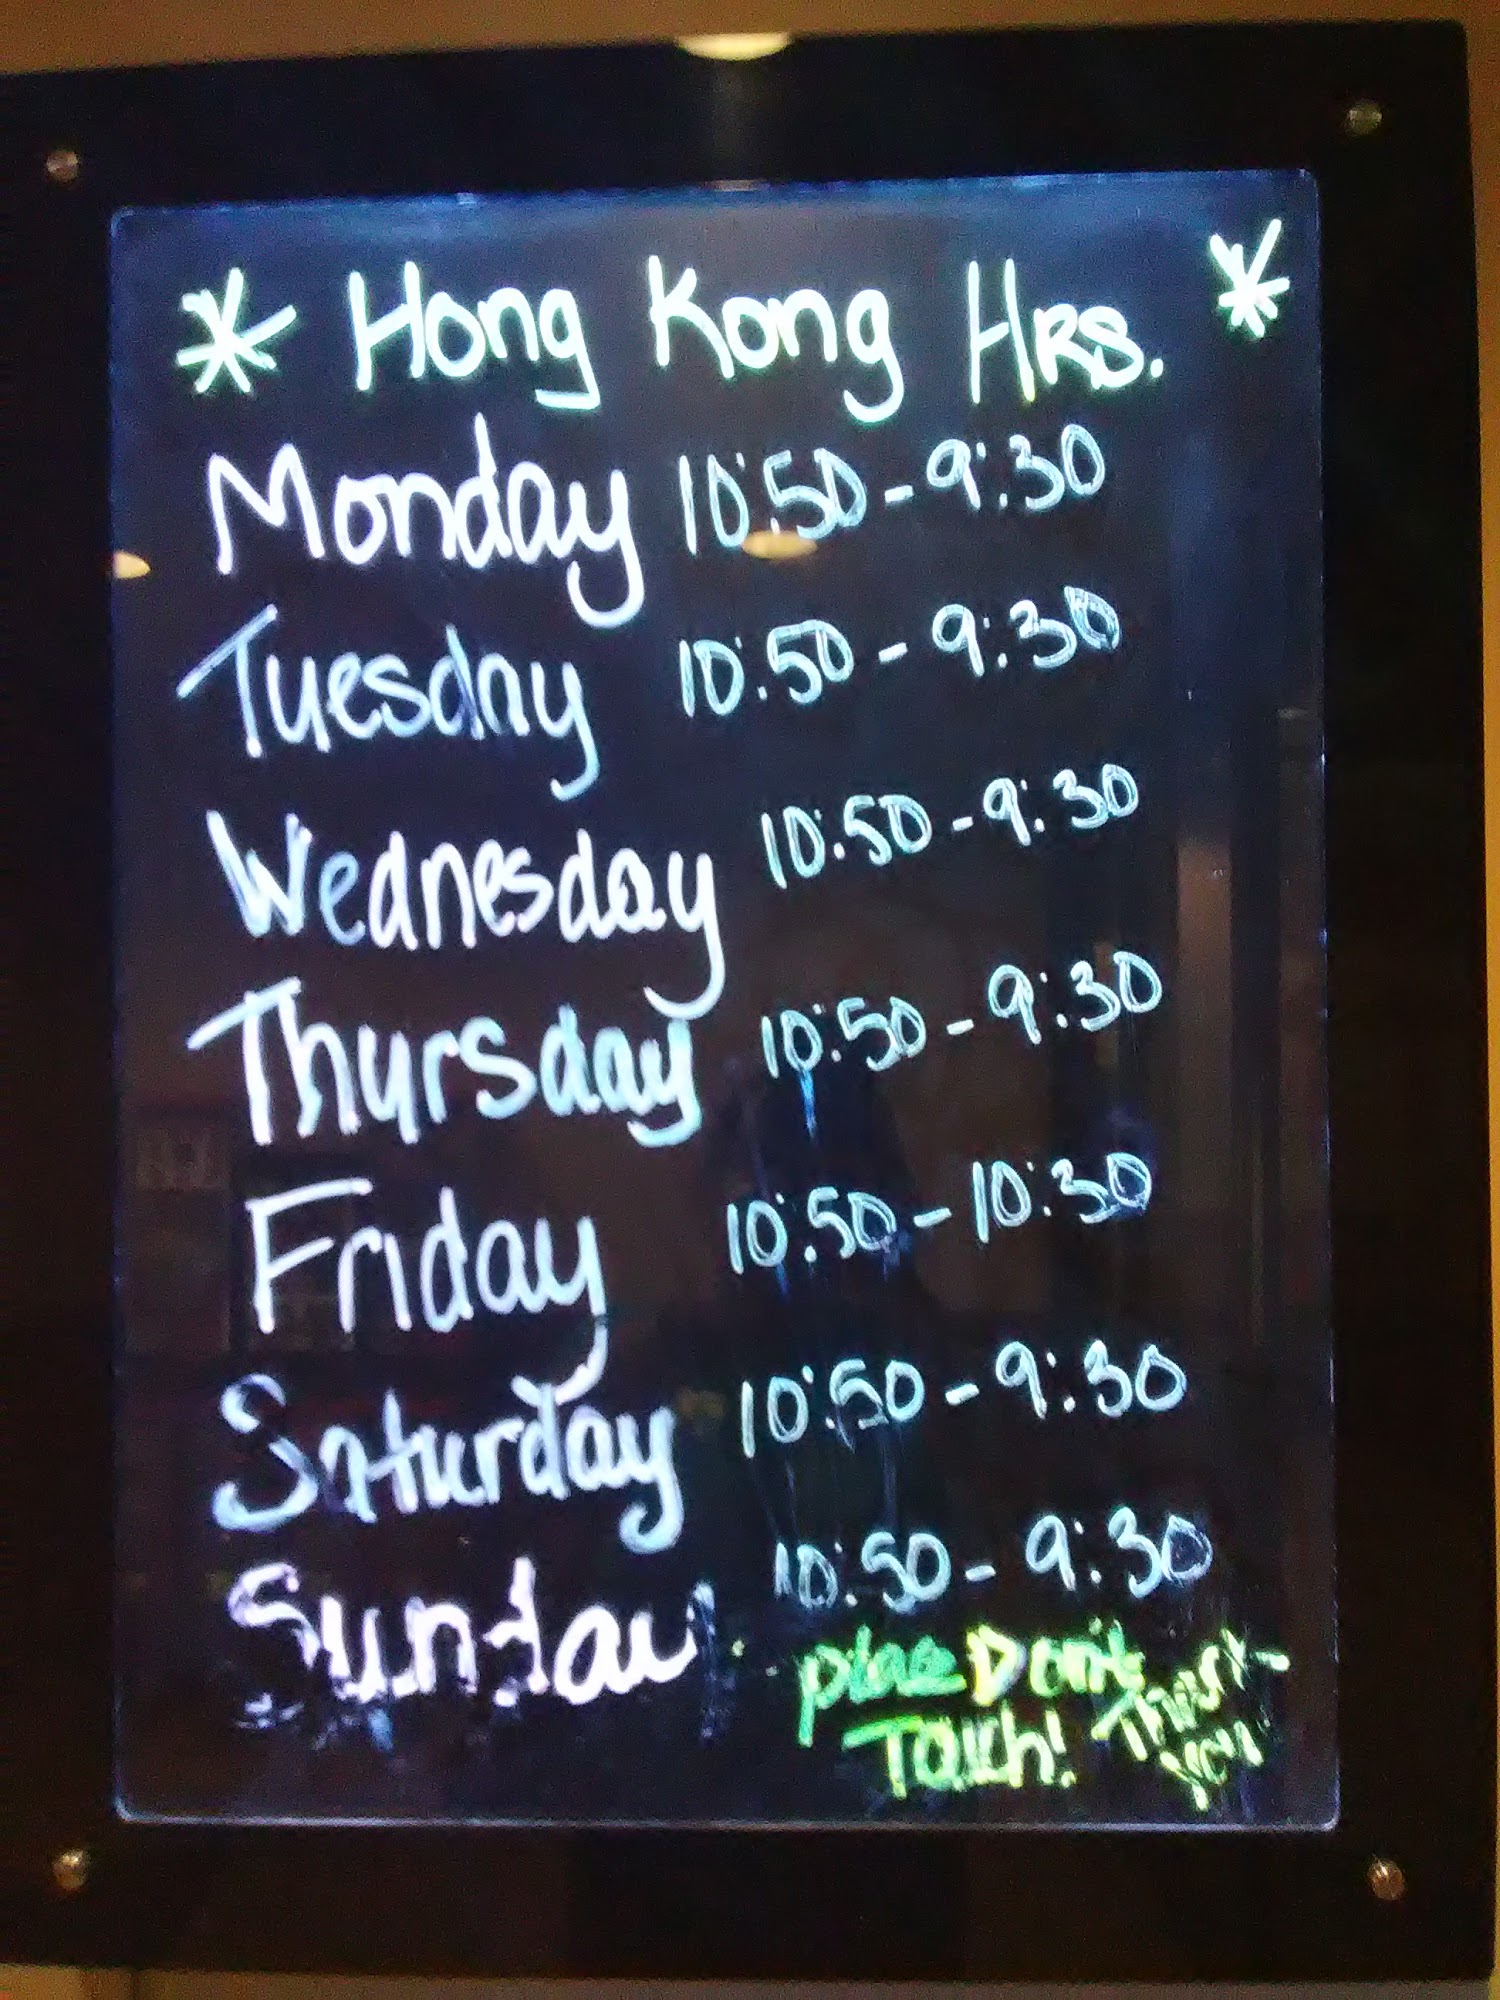 * Hong Kong Hrs. *
Monday 10:50 - 9:30
Tuesday 10:50 - 9:30
Wednesday 10:50 - 9:30
Thursday 10:50 - 9:30
Friday 10:50 - 10:30
Saturday 10:50 - 9:30
Sunday 10:50 - 9:30
Don't
Touch! Thank
you